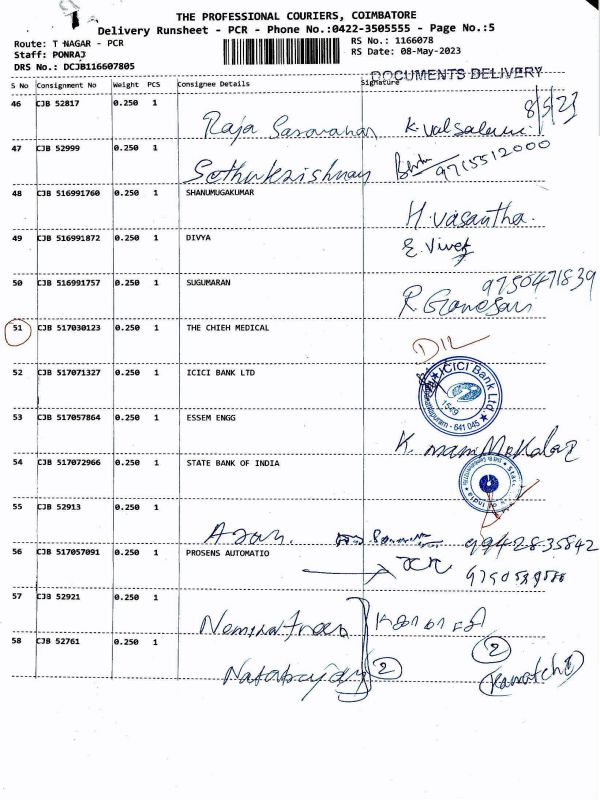 THE PROFESSIONAL COURIERS, COIMBATORE
Delivery Runsheet - PCR - Phone No.:0422-3505555 - Page No.:5
Route: T NAGAR - PCR
RS No.: 1166078
Staff: PONRAJ
RS Date: 08-May-2023
DRS No.: DCJB116607805
DOCUMENTS DELIVERY
S No Consignment No Weight PCS Consignee Details Signature
8/5/23
46 CJB 52817 0.250 1
Raja Saravanan
47 CJB 52999 0.250 1
9715512000
48 CJB 516991760 0.250 1 SHANUMUGAKUMAR
H. Vasantha.
49 CJB 516991872 0.250 1 DIVYA
50 CJB 516991757 0.250 1 SUGUMARAN
9750471839
R Ganesan
51 CJB 517030123 0.250 1 THE CHIEH MEDICAL
52 CJB 517071327 0.250 1 ICICI BANK LTD
ICICI Bank Ltd.
1549
641 045
53 CJB 517057864 0.250 1 ESSEM ENGG
54 CJB 517072966 0.250 1 STATE BANK OF INDIA
55 CJB 52913 0.250 1
99428-35842
56 CJB 517057091 0.250 1 PROSENS AUTOMATIO
57 CJB 52921 0.250 1
58 CJB 52761 0.250 1
2
2